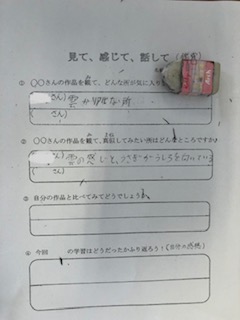 見て、感じて、話して(鑑賞)
① ○○さんの作品を観て、どんな所が気に入り
さん) 雲が
( さん)
② ○○さんの作品を観て、真似してみたい所はどんなところですか
さん) 雲の感じと、うさぎがうしろを向いている
( さん)
③ 自分の作品と比べてみてどうでしょう
④ 今回 の学習はどうだったかふり返ろう!(自分の感想)